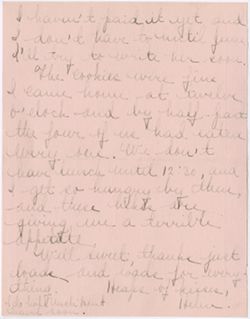 I havn't paid it yet and
I don't have to until June
I'll try to write her soon.
The cookies were fine
I came home at twelve
o'clock and by half past
the four of us had eaten
every one. We don't
have lunch until 12:30, and
I get so hungry by then,
and these are
giving me a terrible
appetite.
Well sweet, thanks just
loads and loads for every-
thing. Heaps of kisses,
I do hope Helen.
soon.